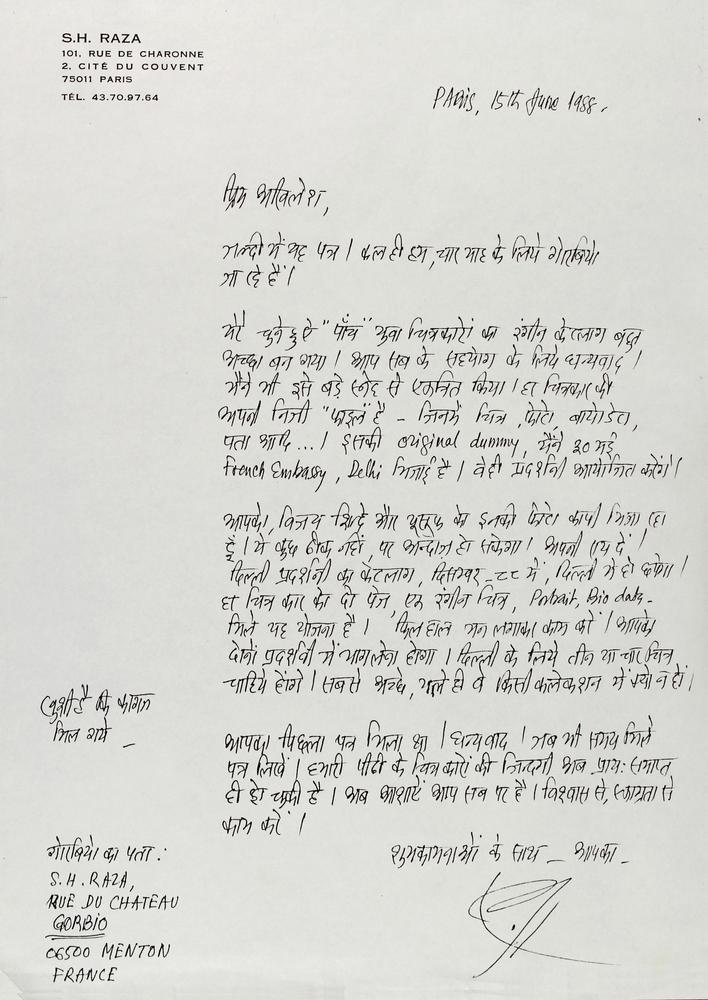 S.H. RAZA
101, RUE DE CHARONNE
2, CITÉ DU COUVENT
75011 PARIS
TÉL. 43.70.97.64
PARIS, 15th June 1988.
प्रिय अखिलेश,
जल्दी में यह पत्र । कल ही हम, चार माह के लिये गोरबियो
जा रहे हैं ।
मेरे चुने हुऐ "पाँच" युवा चित्रकारों का रंगीन केटलाग बहुत
अच्छा बन गया । आप सब के सहयोग के लिये धन्यवाद ।
मैंने भी इसे बड़े स्नेह से एकत्रित किया । हर चित्रकार की
अपनी निजी "फाइल" है - जिनमें चित्र, फ़ोटो, बायोडेटा,
पता आदि ... । इसकी original dummy, मैंने 30 मई
French Embassy, Delhi भिजाई है । वेही प्रदर्शनी आयोजित करेंगे ।
आपको, विजय शिंदे और यूसुफ को इनकी फ़ोटो कापी भिजा रहा
हूँ । ये कुछ ठीक नहीं, पर अन्दाज़ हो सकेगा । अपनी राय दें ।
दिल्ली प्रदर्शनी का केटलाग, दिसम्बर -८८ में, दिल्ली में ही छपेगा ।
हर चित्रकार को दो पेज, एक रंगीन चित्र, Portrait, Bio data-
मिले यह योजना है । फिलहाल मन लगाकर काम करें । आपको
दोनों प्रदर्शनी में भाग लेना होगा । दिल्ली के लिये तीन या चार चित्र
चाहिये होंगे । सबसे अच्छे, भले ही वे किसी कलेकशन में क्यों न हों ।
आपका पिछला पत्र मिला था । धन्यवाद । जब भी समय मिले
पत्र लिखें । हमारी पीढी के चित्रकारों की जिन्दगी अब प्राय: समाप्त
ही हो चुकी है । अब आशाऐं आप सब पर है । विश्वास से, एकाग्रता से
काम करें ।
शुभकामनाओं के साथ - आपका -
के कागज
मिल गये -
गोरबियो का पता :
S.H. RAZA,
RUE DU CHATEAU
GORBIO
06500 MENTON
FRANCE